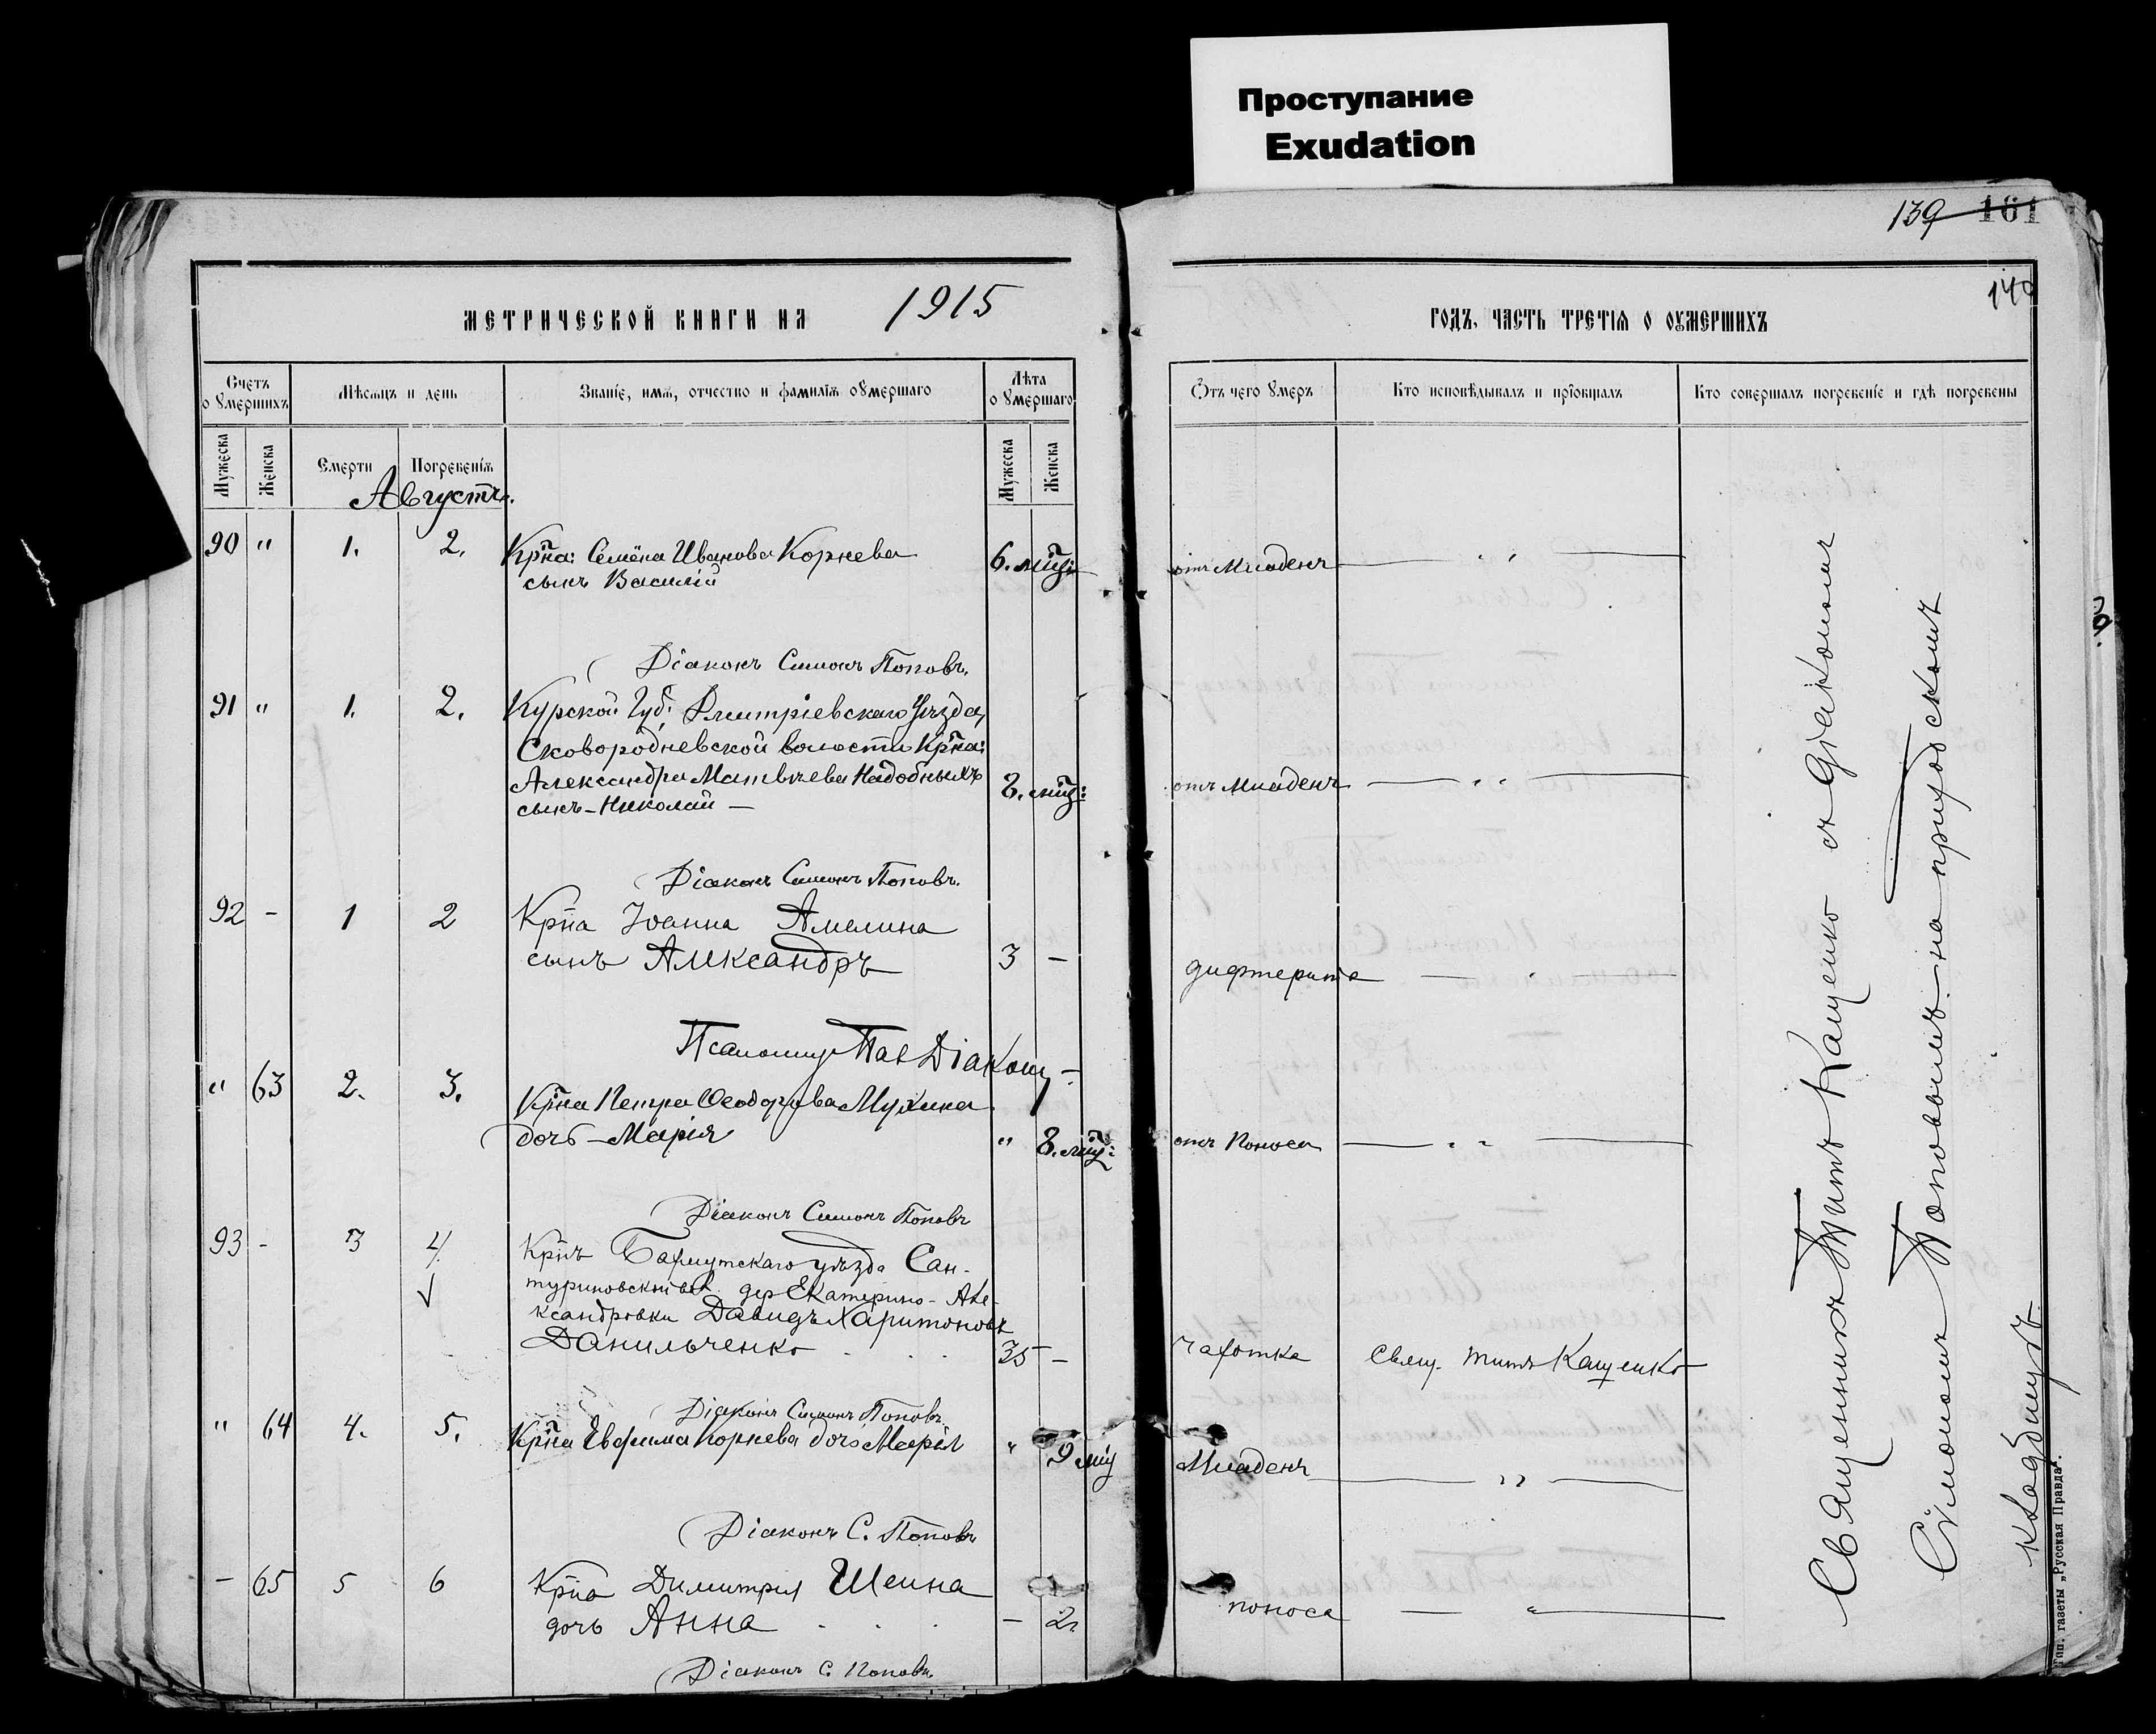 Проступание
Exudation
139 161
140
МЕТРИЧЕСКОЙ КНИГИ НА 1915
Счетъ о умершихъ
Мѣсяцъ и день
Званіе, имя, отчество и фамилія умершаго
Лѣта о умершаго
Мужеска
Женска
Смерти
Погребенія
Мужеска
Женска
Августъ.
90 " 1. 2. Крꙵна: Семёна Иванова Корнева
сынъ Василій
6. мꙵц:
Діаконъ Симонъ Поповъ.
91 " 1. 2. Курской Губ: Дмитріевскаго Уѣзда,
Сковородневской волости Крꙵна:
Александра Матвѣева Надобныхъ
сынъ - Николай -
8. мꙵц:
Діаконъ Симонъ Поповъ.
92 - 1 2 Крꙵна Іоанна Амелина
сынъ Александръ
3 -
Псаломщ. Пав Діакон
" 63 2. 3. Крꙵна Петра Ѳеодорова Мухина
дочь - Марія
" 8. мꙵц:
Діаконъ Симонъ Поповъ
93 - 3 4. Крнъ Бахмутскаго уѣзда Сан-
туриновской вол. дер Екатерино-Але-
ксандровки Давидъ Харитоновъ
Данильченко . . .
35 -
Діаконъ Симонъ Поповъ.
" 64 4. 5. Крꙵна Евфима Корнева дочь Марія
" 9 мц
Діаконъ С. Поповъ
- 65 5 6 Крна Димитрія Шеина
дочь Анна . . .
- 2
Діаконъ С. Поповъ.
ГОДЪ, ЧАСТЬ ТРЕТІЯ О УМЕРШИХЪ
Отъ чего умеръ
Кто исповѣдывалъ и пріобщалъ
Кто совершалъ погребеніе и гдѣ погребены
отъ Младенч
отъ Младенч
дифтерита
отъ Поноса
чахотка Свящ. Титъ Кащенко
Младенч
поноса
Священникъ Титъ Кащенко съ Діакономъ
Симономъ Поповымъ на приходскомъ
кладбищѣ.
Тип. газеты „Русская Правда".